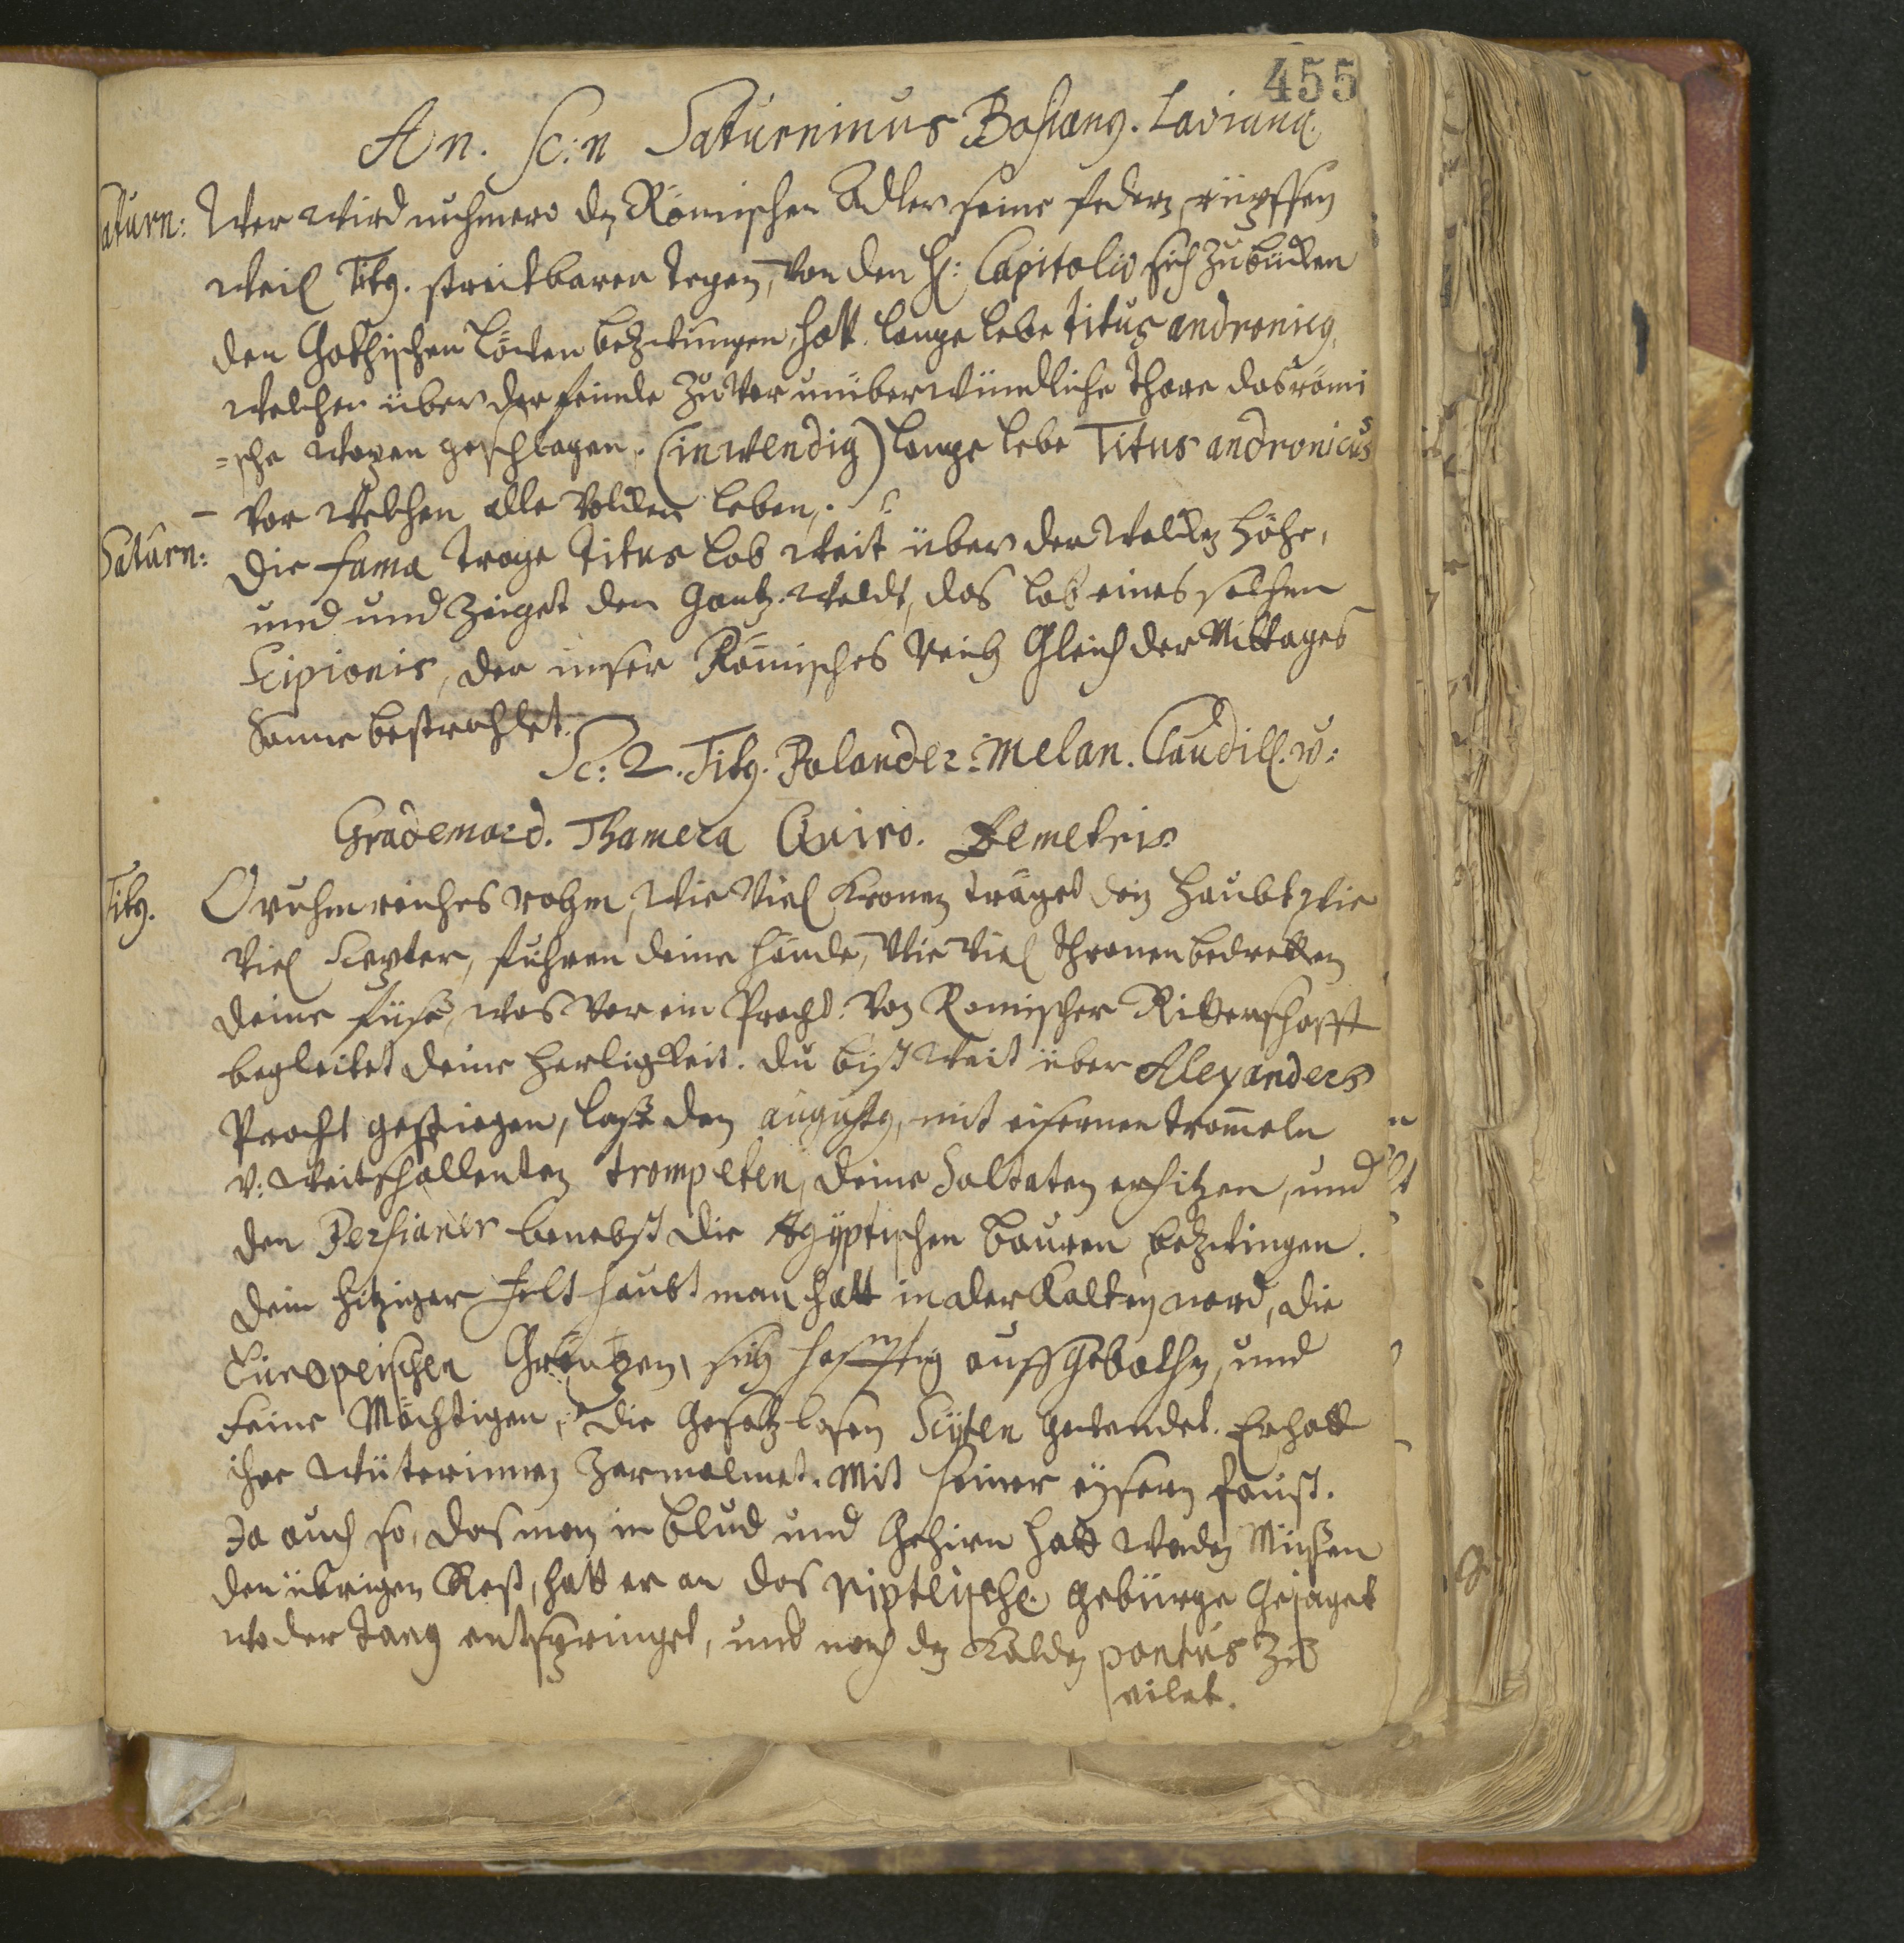 455
An. Sc: n Saturninus Bassianus. Laviana.
Saturn: Wer wird nuhmero dz Römischen Adler seine federn rüpffen
weil Titus. streitbaren degen, von den H: Capitolio sich zu bücken
den Gothischen Löwen bezwungen, hatt. lange lebe Titus andronicus,
welcher über der feinde zuvor unüberwündliche Thore das römi
=sche Wapen geschlagen. (inwendig) lange lebe Titus andronicus
vor welchen alle Völcker beben.
Saturn: Die fama trage Titus lob weit über der Wolcken höhe,
und und zeiget der gantzen Weldt, das lob eines solchen
Scipionis, der unser Römisches Reich Gleich der Mittages
Sonne bestrahlet.
Sc: 2. Titus. Polander: Melan. Claudill. v:
Grademard. Thamera Quiro. Demetrio
Titus. O ruhmreiches rohm, wie viel Kronen träget dein Haubt, wie
viel Scepter, führen deine hände, wie viel thronen bedretten
deine füße, was vor ein Pracht von Romischer Ritterschafft
begleitet deine herligkeit. du bist weit über Alexanders
Pracht gestiegen, lasse den augustus, mit eisernen trommeln
v: weitschallenten trompeten, deine Soltaten erhitzen, und
den Persianer benebst die Ägyptischen Bauren bezwingen.
dein hitziger feltHaubtman hatt in der Kalten nord, die
Europeischen Gräntzen, sich hefftig auffgebothen, und
seine Mächtigen, die gesetzlosen Scyten gewendet. Er hatt
ihre Wüterinnen zermalmet. Mit seiner eysern faust.
Ja auch so, das man in blud und Gehirn hatt waden Müßen
den übrigen Rest, hatt er an das ripteische gebürge gejaget
wo der Tanus entspringet, und nach den Kalden pontus zu
eilet.